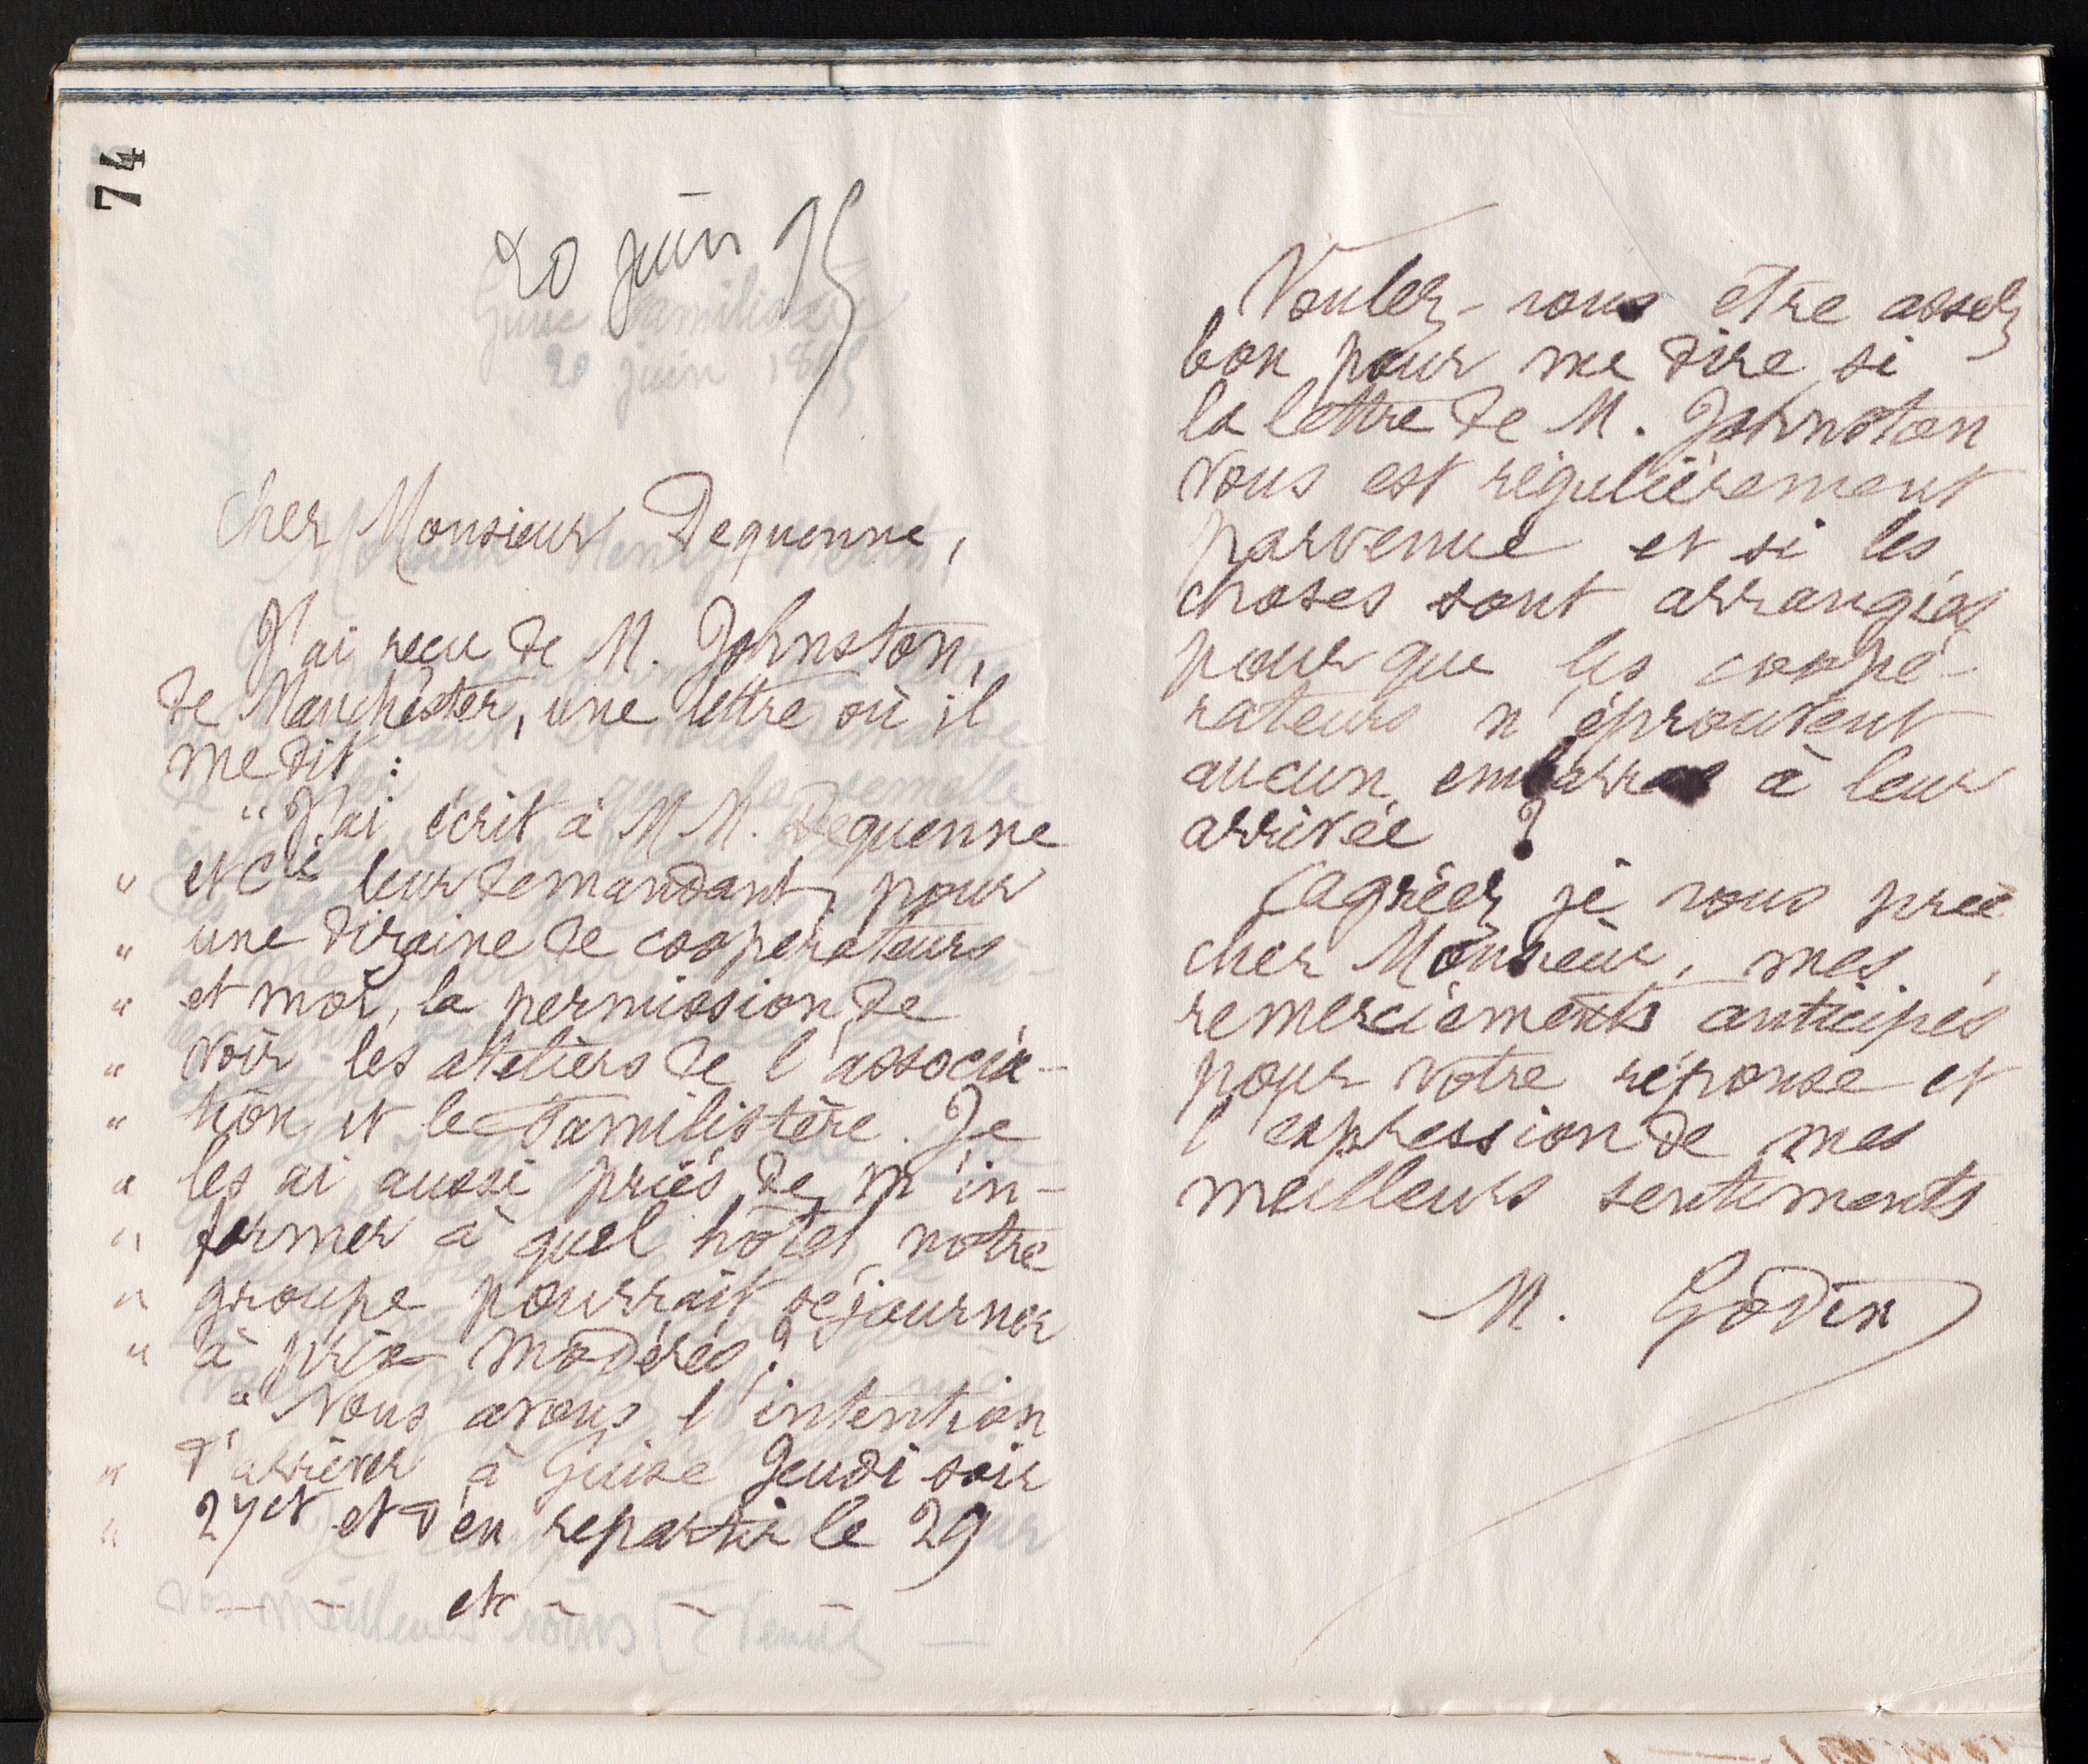 74
20 juin 95
Cher Monsieur Dequenne,
J'ai reçu de M. Johnston,
de Manchester, une lettre où il
me dit :
"J'ai écrit à MM. Dequenne
" et Cie leur demandant, pour
" une dizaine de coopérateurs
" et moi, la permission de
" voir les ateliers de l'associa-
" tion et le Familistère. Je
" les ai aussi priés de m'in-
" former à quel hôtel notre
" groupe pourrait séjourner
" à prix modérés ?
" Nous avons l'intention
" d'arriver à Guise Jeudi soir
" 27 ct et d'en repartir le 29
— — etc — — —
Voulez-vous être assez
bon pour me dire si
la lettre de M. Johnston
vous est régulièrement
parvenue et si les
choses sont arrangées
pour que les coopé-
rateurs n'éprouvent
aucun embarras à leur
arrivée ?
Agréez, je vous prie
cher Monsieur, mes
remerciements anticipés
pour votre réponse et
l'expression de mes
meilleurs sentiments
M. Godin